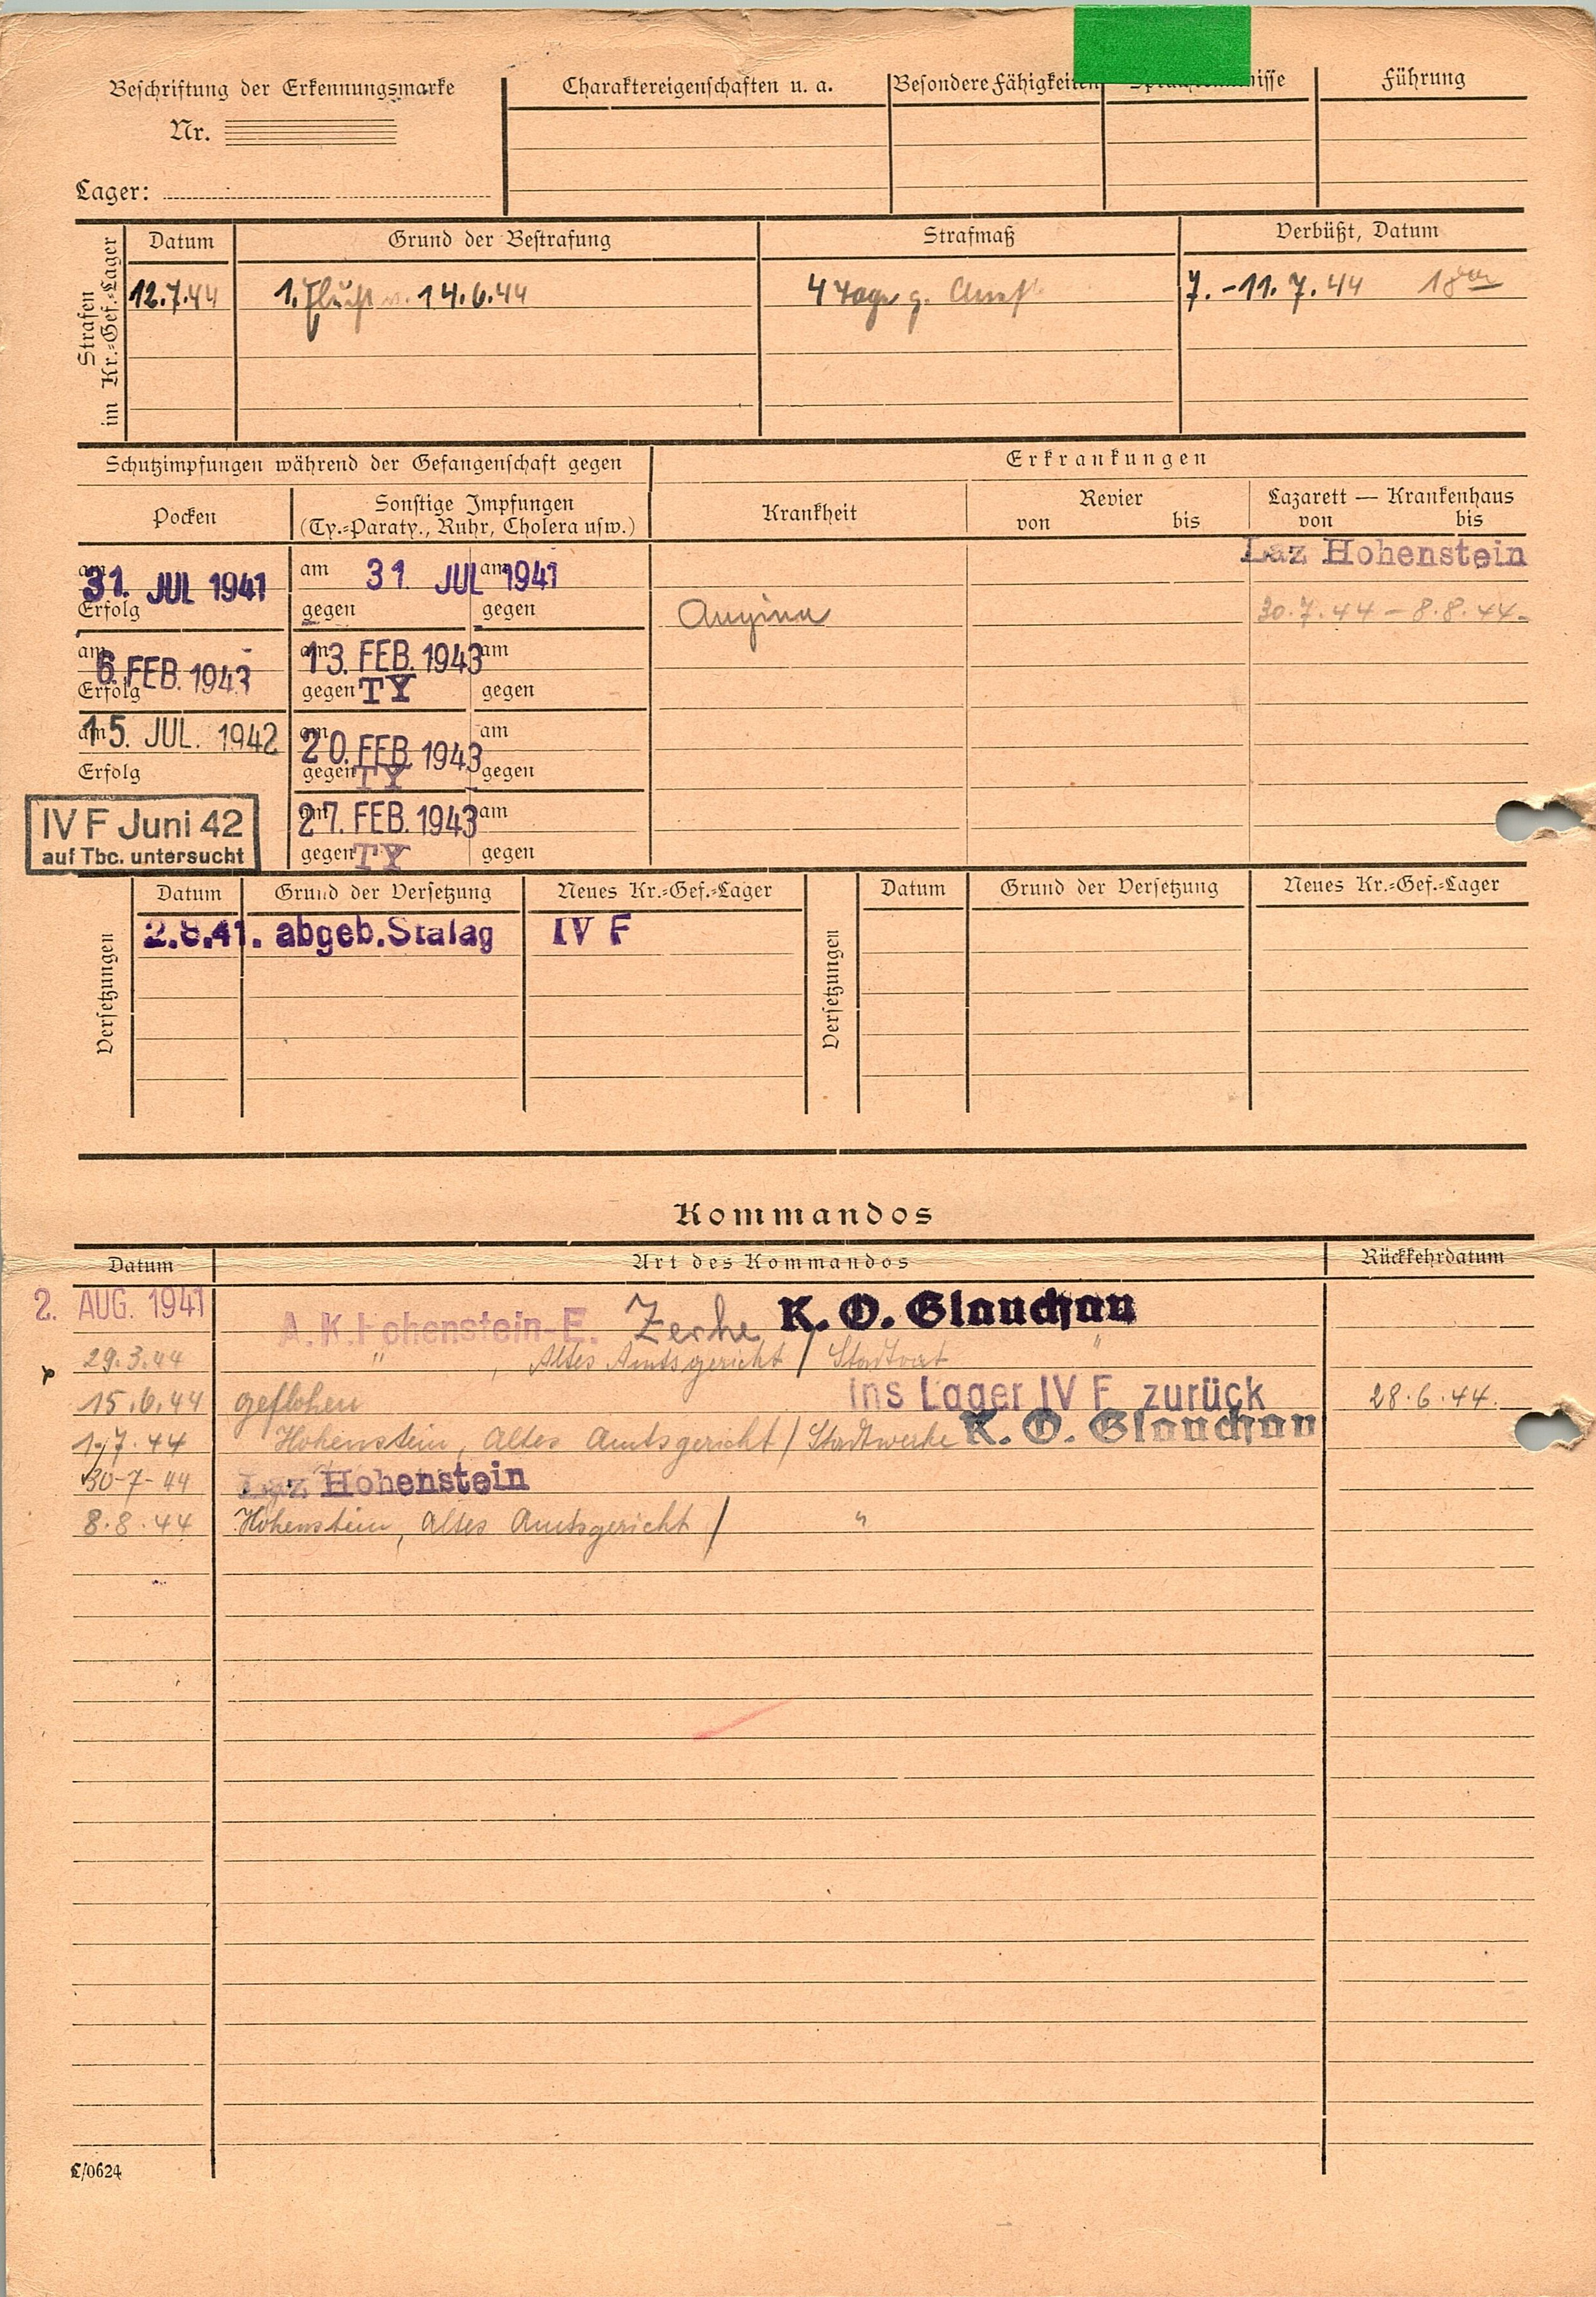 Beschriftung der Erkennungsmarke
Nr.
Lager:
Charaktereigenschaften u. a.
Besondere Fähigkeiten
Führung
Strafen im Kr.=Gef.=Lager
Datum Grund der Bestrafung Strafmaß Verbüßt, Datum
12.7.44 1. Flucht v. 14.6.44 4 Tage g. Arrest 7.-11.7.44 18
Schutzimpfungen während der Gefangenschaft gegen
Erkrankungen
Pocken
Sonstige Impfungen
(Ty.=Paraty., Ruhr, Cholera usw.)
Krankheit
Revier
von bis
Lazarett — Krankenhaus
von bis
Laz Hohenstein
am 31. JUL 1941 am 31. JUL 1941 am
Erfolg gegen gegen
Angina 30.7.44 - 8.8.44.
am 6. FEB. 1943 am 13. FEB. 1943 am
Erfolg gegen TY gegen
am 15. JUL. 1942 am 20. FEB. 1943 am
Erfolg gegen TY gegen
am 27. FEB. 1943 am
gegen TY gegen
IV F Juni 42
auf Tbc. untersucht
Versetzungen
Datum Grund der Versetzung Neues Kr.=Gef.=Lager
2.8.41. abgeb. Stalag IV F
Versetzungen
Datum Grund der Versetzung Neues Kr.=Gef.=Lager
Kommandos
Datum Art des Kommandos Rückkehrdatum
2. AUG. 1941 A.K. Hohenstein-E. Zeche K. O. Glauchau
29.3.44 " , Altes Amtsgericht / Stadtrat "
15.6.44 geflohen ins Lager IV F zurück 28.6.44.
1.7.44 Hohenstein, Altes Amtsgericht / Stadtwerke K. O. Glauchau
30-7-44 Laz Hohenstein
8.8.44 Hohenstein, Altes Amtsgericht / "
C/0624